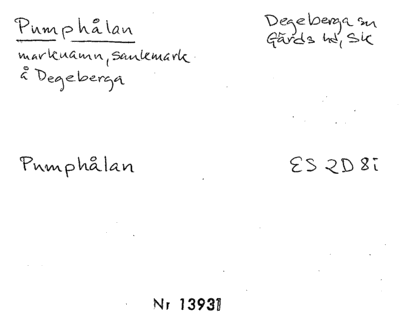 Pumphålan
Degeberga sn
Gärds hd, Sk
marknamn, sankmark
å Degeberga
Pumphålan
ES 2D 8i
Nr 13931